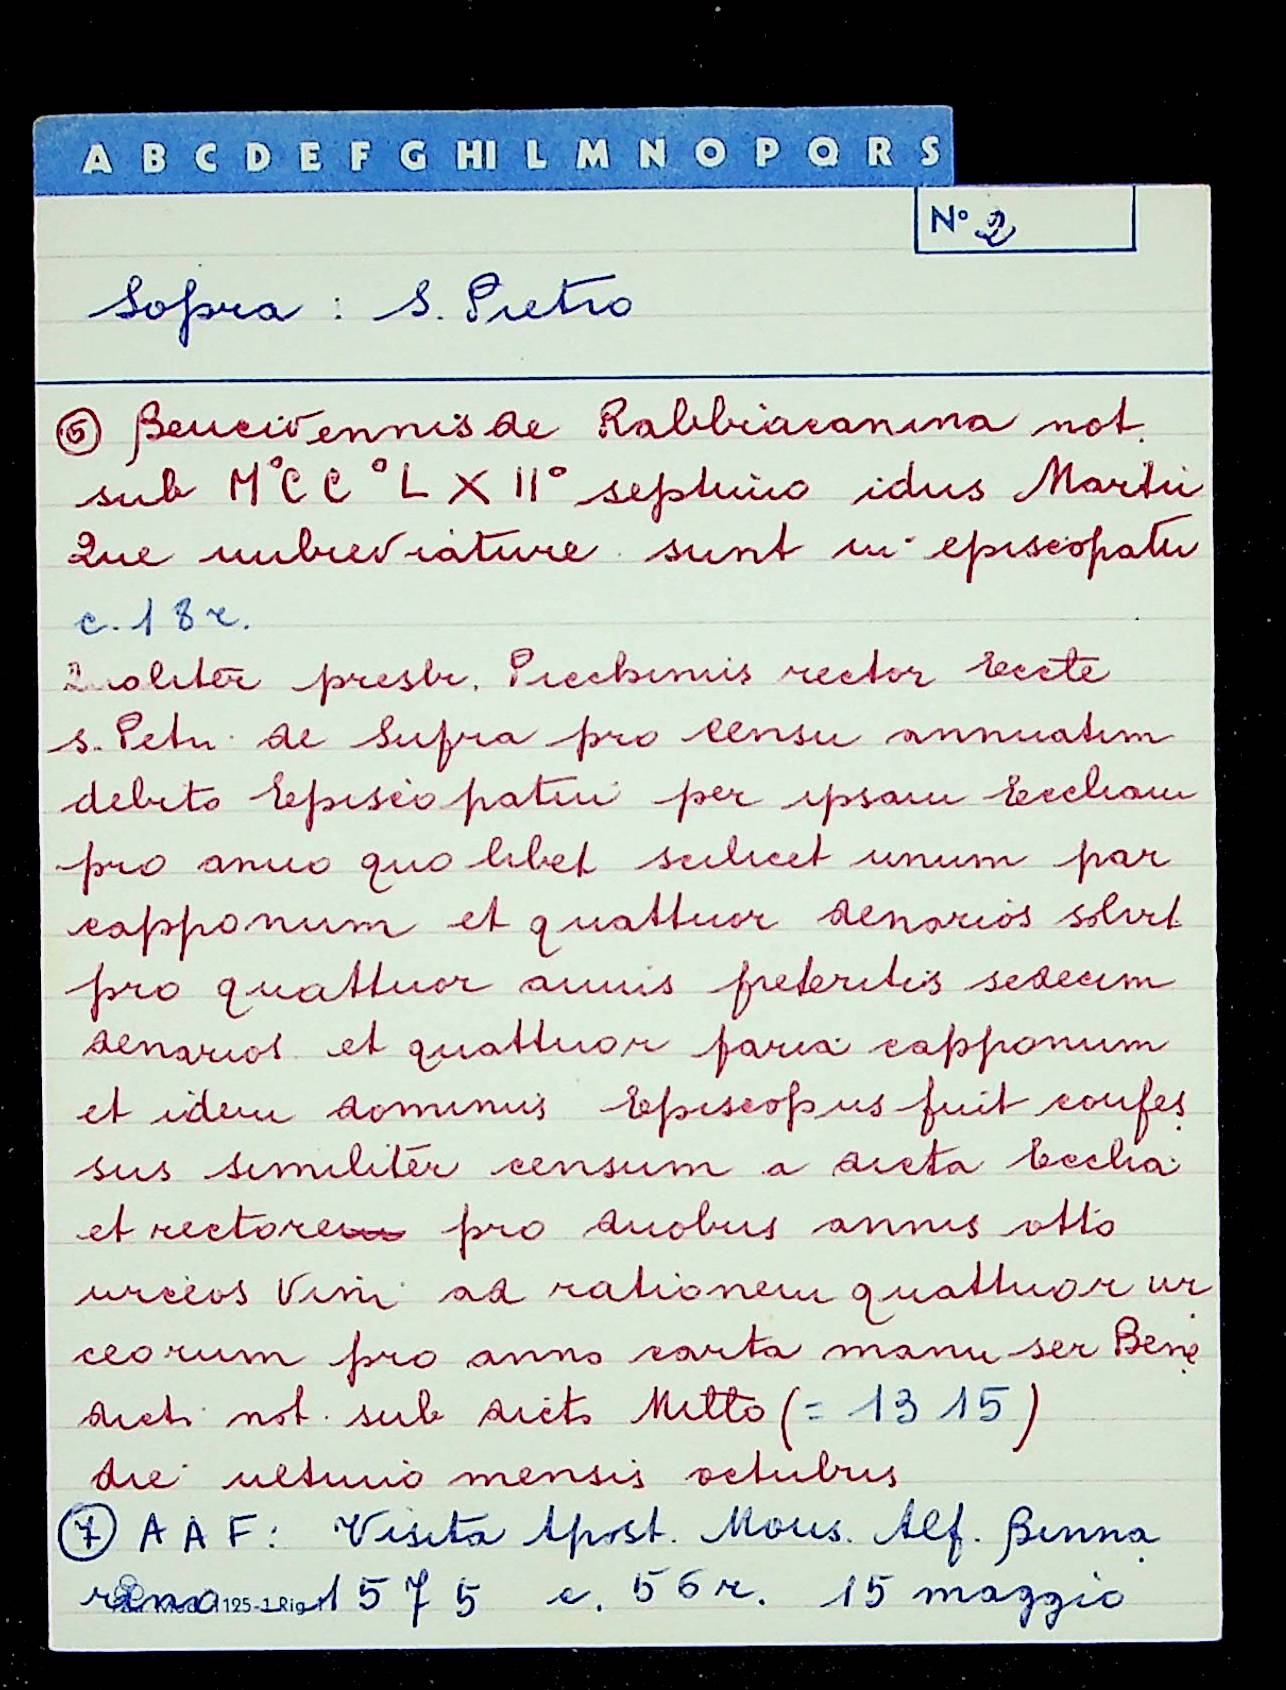 A B C D E F G HI L M N O P Q R S
N° 2
Sopra : S. Pietro
⑥ Bencivennis de Rabbiacanina not.
sub M°CC°LXII° septimo idus Martii
Que imbreviature sunt in episcopatu
c. 18 r.
Qualiter presbr. Picchinus rector Eccte
s. Petri de Supra pro censu annuatim
debito Episcopatui per ipsam Eccliam
pro anno quo libet scilicet unum par
capponum et quattuor denarios solvit
pro quattuor annis preteritis sedecim
denarios et quattuor paria capponum
et idem dominus Episcopus fuit confes
sus similiter censum a dicta Ecclia
et rectorem pro duobus annis otto
urceos Vini ad rationem quattuor ur
ceorum pro anno carta manu ser Bene
dicti not. sub dicto Mitto (= 1315)
die ultimo mensis octubris
⑦ A A F: Visita Apost. Mons. Alf. Binna
rino 1575 c. 56 r. 15 maggio
1125-1 Rig.